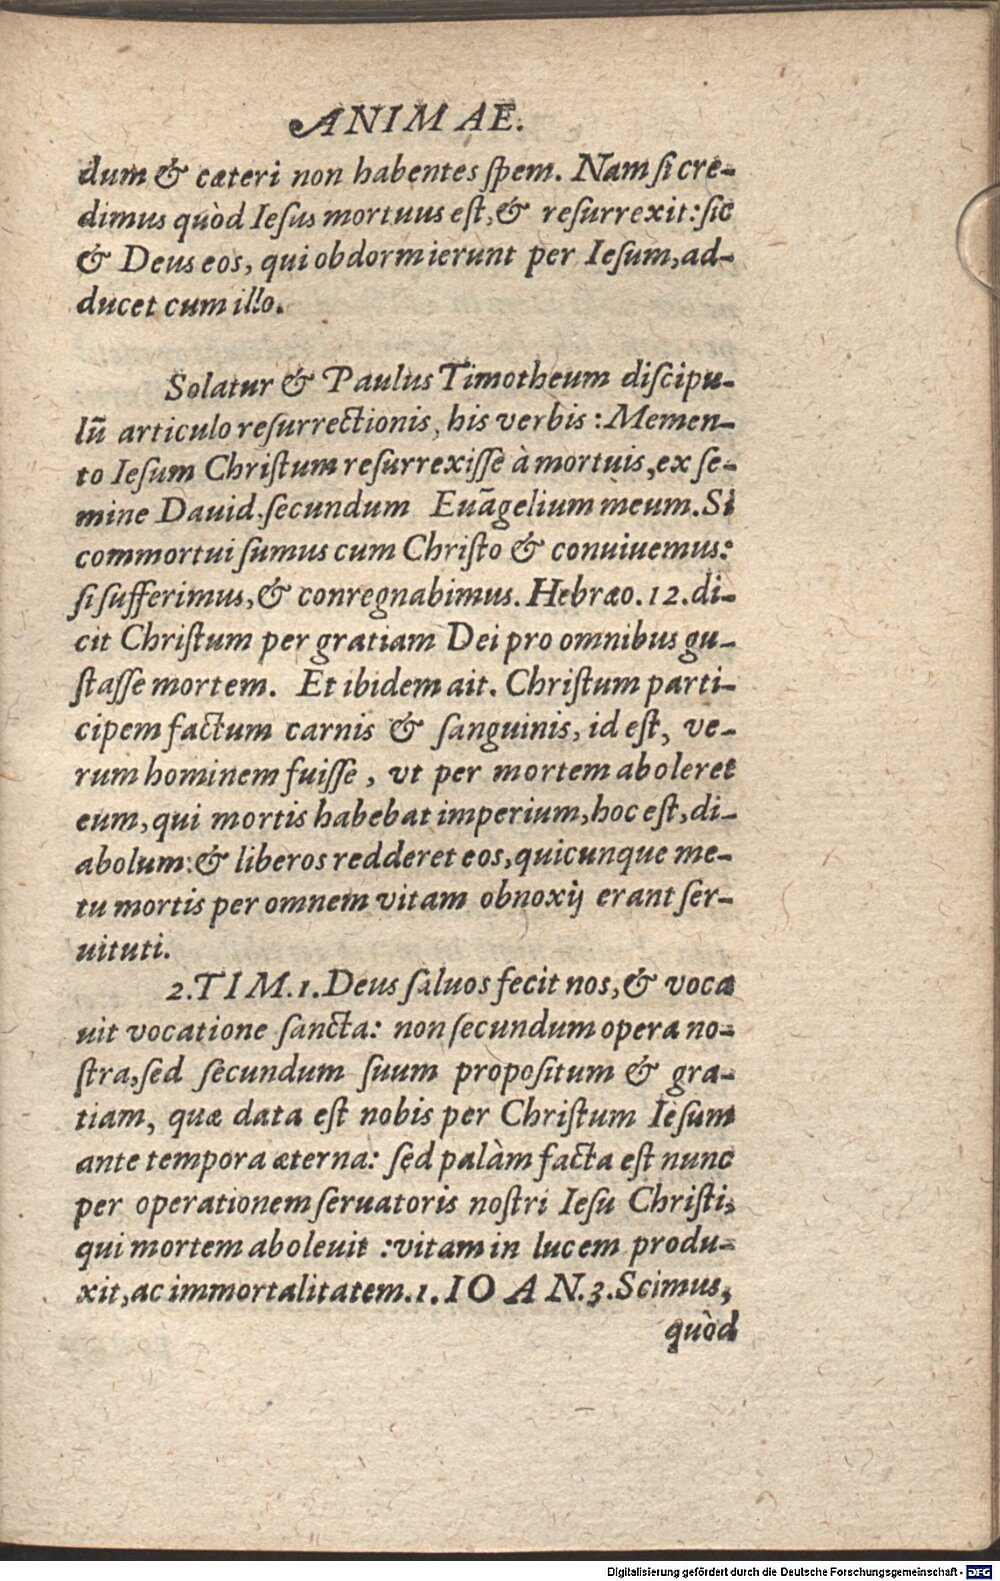 ANIMAE.
dum & cæteri non habentes ſpem. Nam ſi cre-
dimus quòd Ieſus mortuus eſt, & reſurrexit: ſic
& Deus eos, qui obdormierunt per Ieſum, ad-
ducet cum illo.
Solatur & Paulus Timotheum diſcipu-
lū articulo reſurrectionis, his verbis: Memen-
to Ieſum Chriſtum reſurrexiſſe à mortuis, ex ſe-
mine Dauid. ſecundum Euāgelium meum. Si
commortui ſumus cum Chriſto & conuiuemus:
ſi ſufferimus, & conregnabimus. Hebræo. 12. di-
cit Chriſtum per gratiam Dei pro omnibus gu-
ſtaſſe mortem. Et ibidem ait. Chriſtum parti-
cipem factum carnis & ſanguinis, id eſt, ve-
rum hominem fuiſſe, vt per mortem aboleret
eum, qui mortis habebat imperium, hoc eſt, di-
abolum: & liberos redderet eos, quicunque me-
tu mortis per omnem vitam obnoxij erant ſer-
uituti.
2. TIM. 1. Deus ſaluos fecit nos, & voca
uit vocatione ſancta: non ſecundum opera no-
ſtra, ſed ſecundum ſuum propoſitum & gra-
tiam, quæ data eſt nobis per Chriſtum Ieſum
ante tempora æterna: ſed palàm facta eſt nunc
per operationem ſeruatoris noſtri Ieſu Chriſti,
qui mortem aboleuit: vitam in lucem produ-
xit, ac immortalitatem. 1. IOAN. 3. Scimus,
quòd
Digitalisierung gefördert durch die Deutsche Forschungsgemeinschaft - DFG